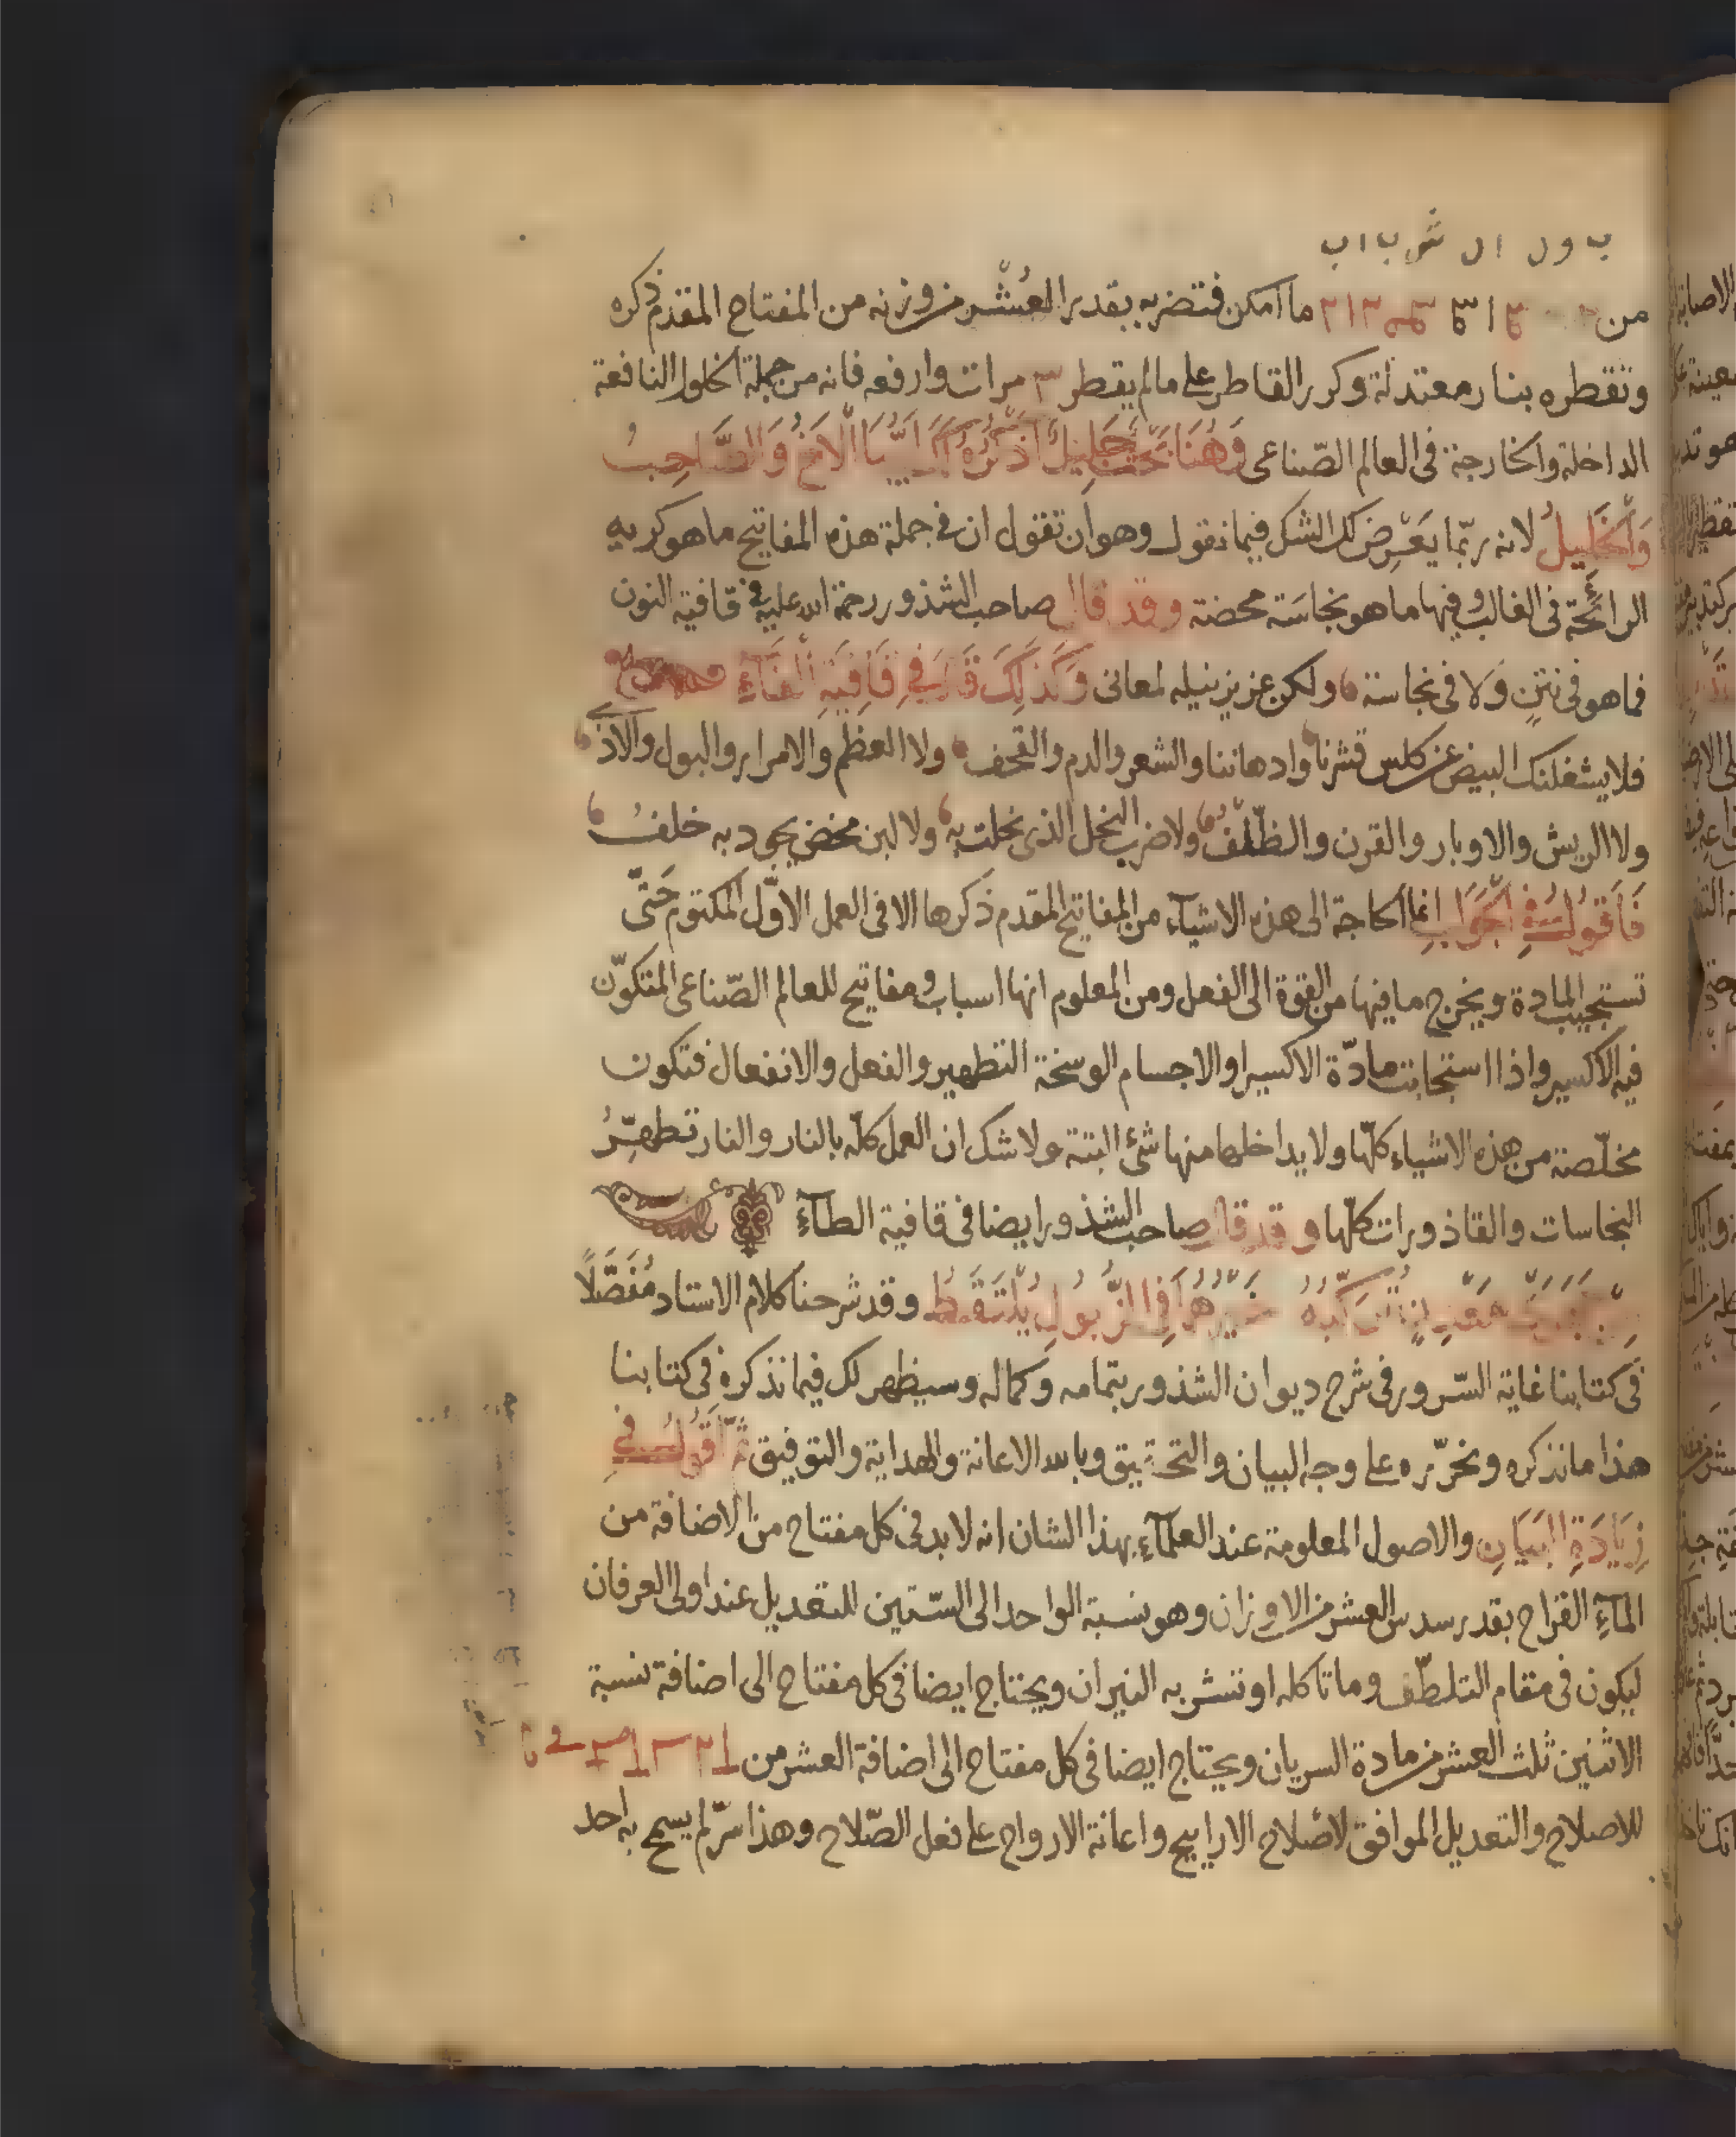 ب و ل ا ل ش ب ا ب
من ما امكن فتضربه بقدر العُشْر من وزنه من المفتاح المقدم ذكره
وتقطره بنار معتدلة وكرر القاطر على ما لم يقطر ٣ مرات وارفعه فانه من جملة الخلول النافعة
الداخلة والخارجة فى العالم الصّناعى وَهُنَا بحث جَلِيلٌ اذكُرُه لك ايُّهَا الْاَخُ وَالصَّاحِبُ
وَالْخَلِيلُ لانه ربّما يَعْرِض لك الشك فيما نقول وهو ان تقول ان فى جملة هذه المفاتيح ما هو كريه
الرائحة فى الغالب وفيها ما هو نجاسَة محضة وقد قال صاحب الشذور رحمة الله عليه فى قافية النون
فما هو فى نتنٍ وَلا فى نجاسة ولكن عزيز نيله لمعانى وَكَذٰلِكَ قَالَ فِي قَافِيَةِ الْفَاءِ
فلا يشغلنك البيض عن كلس قشرنا وادهاننا والشعر والدم والقحف ولا العظم والامرار والبول والاذى
ولا الريش والاوبار والقرن والظّلْفُ ولا ضرب النحل الذى نحلت به ولا لبن مخض يجود به خلفُ
فَاَقُولُ فِي الْجَوَابِ انما الحاجة الى هذه الاشيآء من المفاتيح المقدم ذكرها الا فى العمل الاوّل المكتوم حَتّى
تستجيب المادة ويخرج ما فيها من القوة الى الفعل ومن المعلوم انها اسباب ومفاتيح للعالم الصّناعى المتكوّن
فيه الاكسير واذا استجابت مادّة الاكسير او الاجسام الوسخة التطهير والفعل والانفعال فتكون
مخلّصة من هذه الاشياء كلّها ولا يداخلها منها شئ البتة ولا شك ان العمل كلّه بالنار والنار تطهِّرُ
النجاسات والقاذورات كلّها وقد قال صاحب الشذور ايضا فى قافية الطآءِ
فِي الزُّبُولِ يُلْتَقَطُ وقد شرحنا كلام الاستاد مُفَصَّلًا
فى كتابنا غاية السّرور فى شرح ديوان الشذور بتمامه وكماله وسيظهر لك فيما نذكره فى كتابنا
هذا ما نذكره ونحرّره على وجه البيان والتحقيق وبالله الاعانة والهداية والتوفيق ثُمَّ اَقُولُ فِي
زِيَادَةِ الْبَيَانِ والاصول المعلومة عند العلمآءِ بهذا الشان انه لا بد فى كل مفتاح من الاضافة من
المآءِ القراح بقدر سدس العشر من الاوزان وهو نسبة الواحد الى السّتين للتعديل عند اولى العرفان
ليكون فى مقام التلطّف وما تاكله او تنشر به النيران ويحتاج ايضا فى كل مفتاح الى اضافة نسبة
الاثنين ثلث العشر من مادة السريان ويحتاج ايضا فى كل مفتاح الى اضافة العشر من
للاصلاح والتعديل الموافق لاصْلاح الاراييح واعانة الارواح على فعل الصّلاح وهذا سرّ لم يسمح به احد